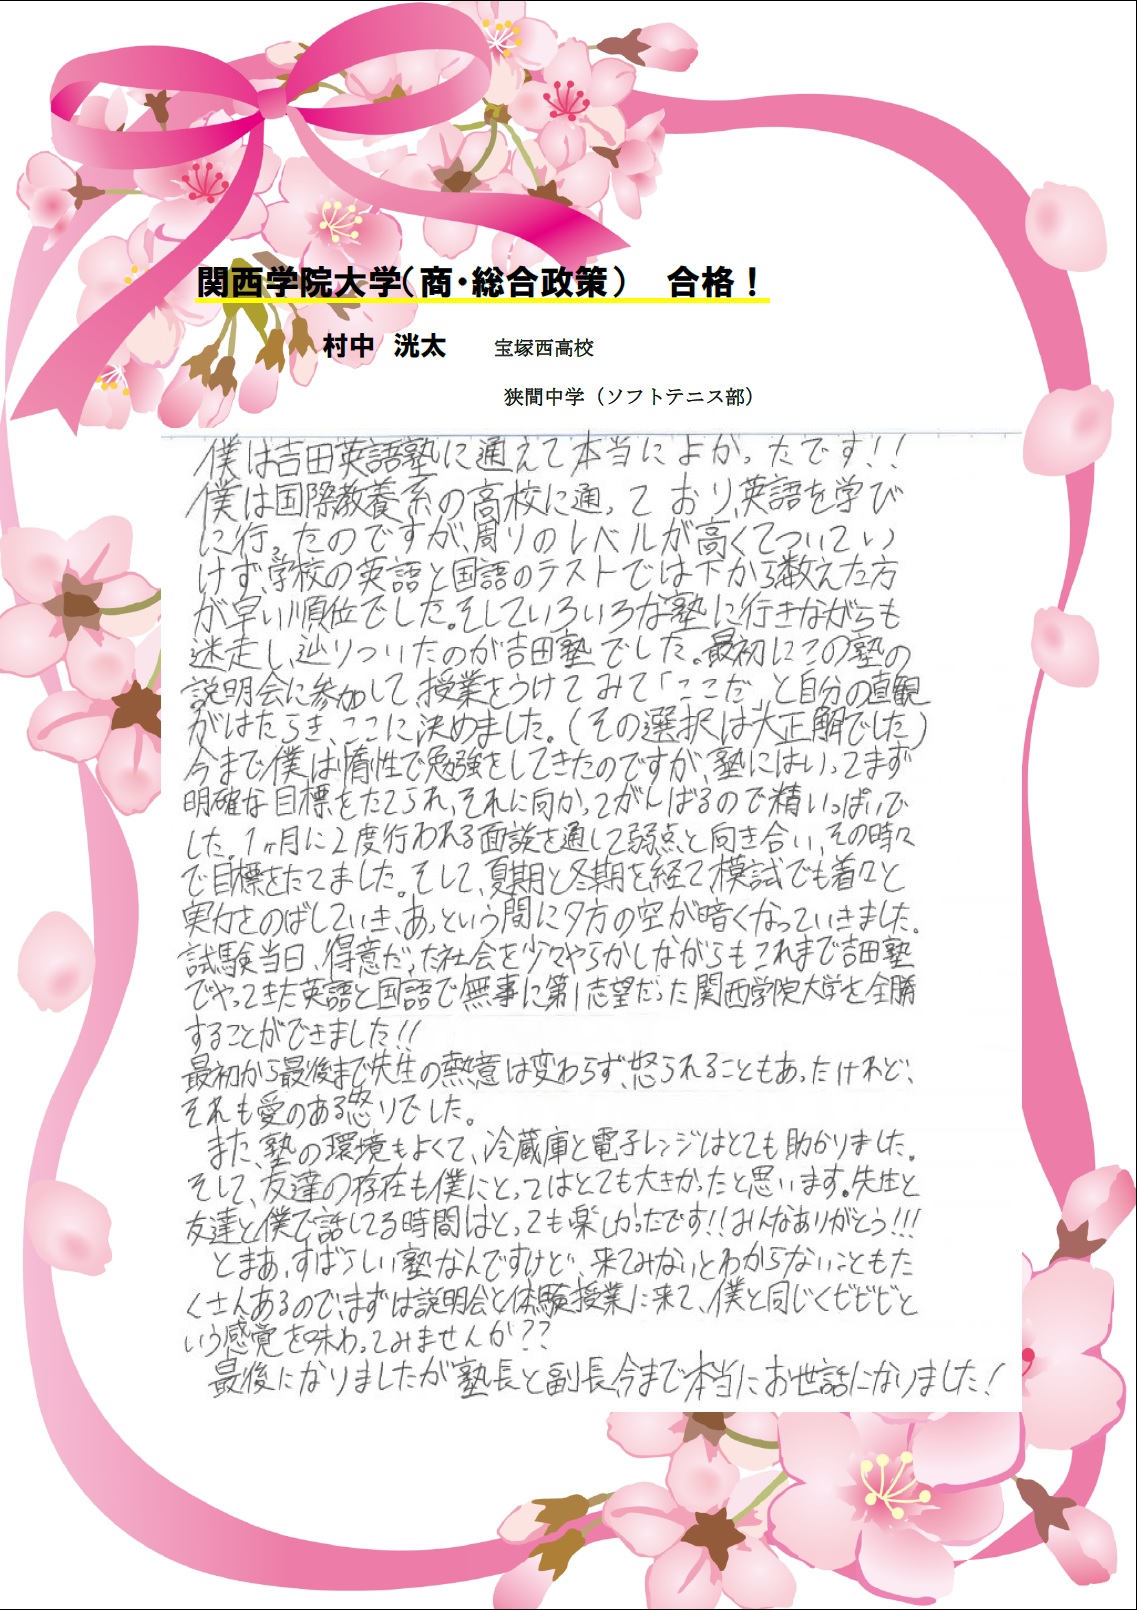 関西学院大学（商・総合政策）　合格！
村中　洸太　　宝塚西高校
狭間中学（ソフトテニス部）
僕は吉田英語塾に通えて本当によかったです！！
僕は国際教養系の高校に通っており、英語を学び
に行ったのですが、周りのレベルが高くてついてい
けず、学校の英語と国語のテストでは下から数えた方
が早い順位でした。そしていろいろな塾に行きながらも
迷走し、辿りついたのが吉田塾でした。最初にこの塾の
説明会に参加して、授業をうけてみて「ここだ」と自分の直観
がはたらき、ここに決めました。（その選択は大正解でした）
今まで僕は惰性で勉強をしてきたのですが、塾にはいってまず
明確な目標をたてられ、それに向かってがんばるので精いっぱいで
した。1ヶ月に2度行われる面談を通して弱点と向き合い、その時々
で目標をたてました。そして、夏期と冬期を経て、模試でも着々と
実力をのばしていき、あっという間に夕方の空が暗くなっていきました。
試験当日、得意だった社会を少々やらかしながらもこれまで吉田塾
でやってきた英語と国語で無事に第1志望だった関西学院大学を全勝
することができました！！
最初から最後まで先生の熱意は変わらず、怒られることもあったけれど、
それも愛のある怒りでした。
また、塾の環境もよくて、冷蔵庫と電子レンジはとても助かりました。
そして、友達の存在も僕にとってはとても大きかったと思います。先生と
友達と僕で話してる時間はとっても楽しかったです！！みんなありがとう！！！
とまあ、すばらしい塾なんですけど、来てみないとわからないこともた
くさんあるので、まずは説明会と体験授業に来て、僕と同じくビビビと
いう感覚を味わってみませんか？？
最後になりましたが塾長と副長、今まで本当にお世話になりました！